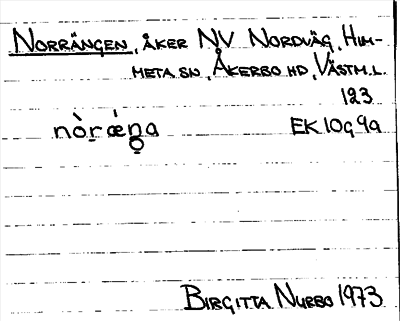 NORRÄNGEN, ÅKER NV NORDVÄG, HUM-
META SN, ÅKERBO HD, VÄSTM.L.
123
nòr̠ǽn̠g̱a EK10g9a
BIRGITTA NURBO 1973